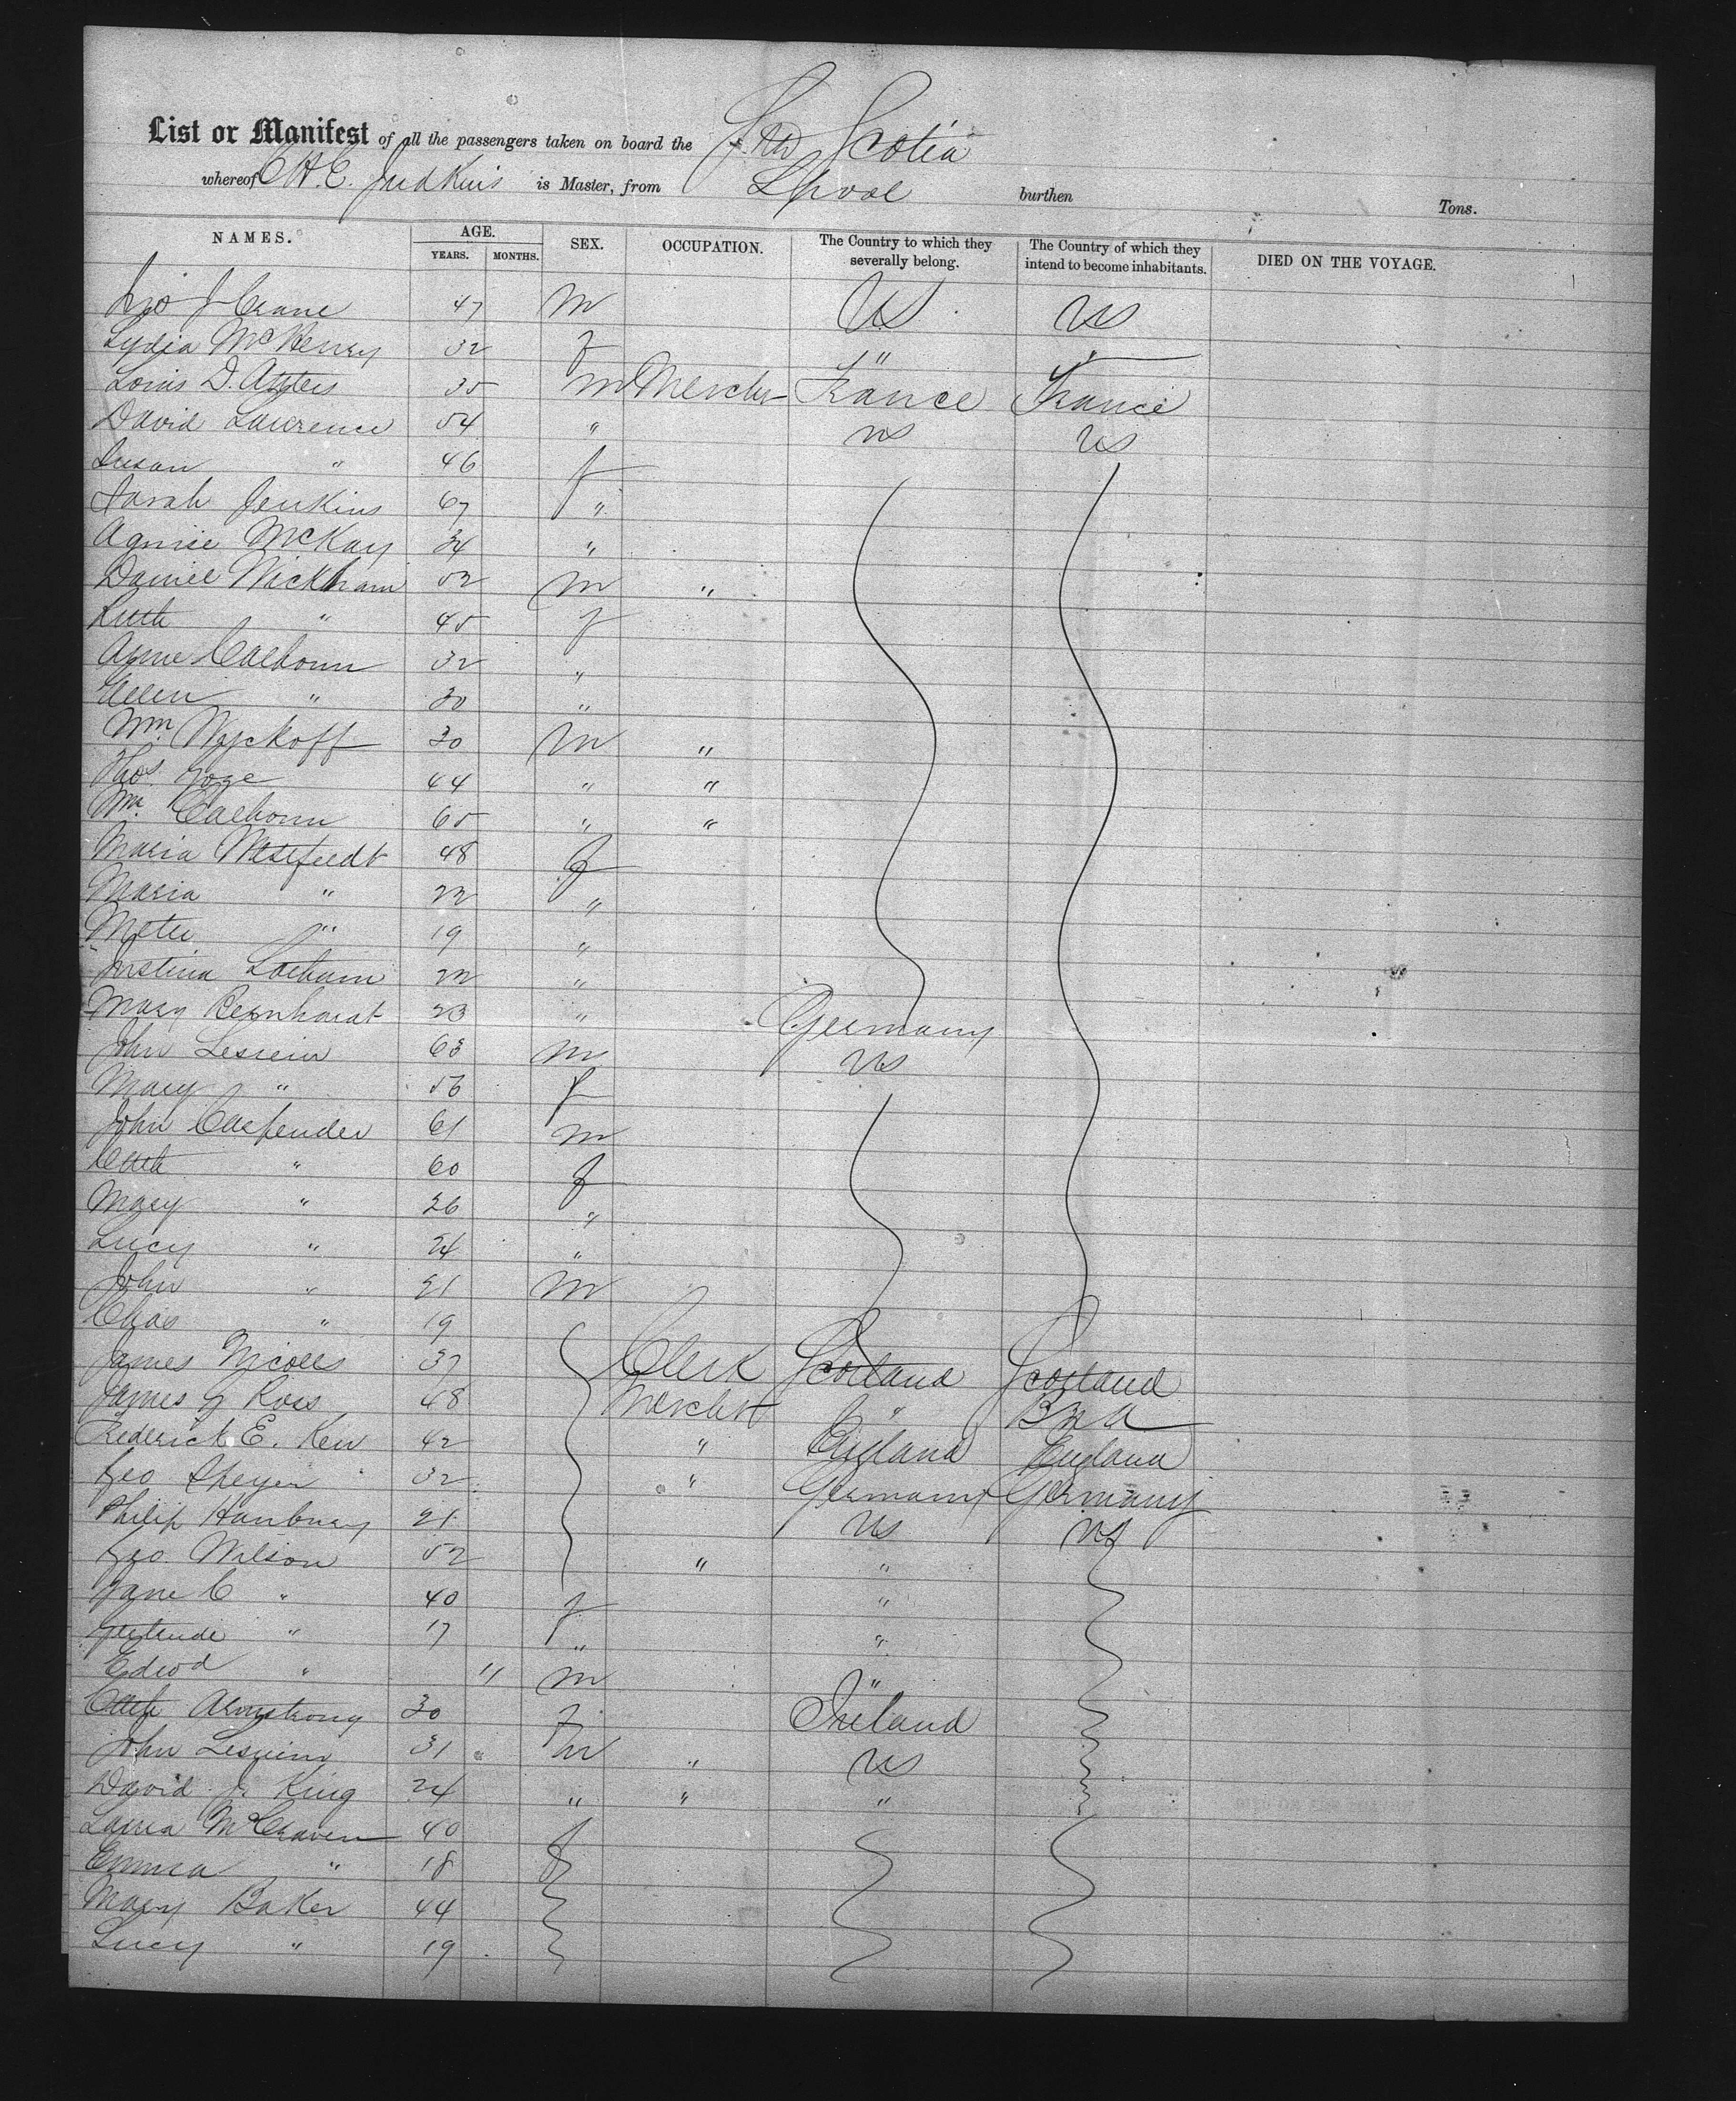 List or Manifest of all the passengers taken on board the Str Scotia
whereof C.H.E. Judkins is Master, from Lpool burthen Tons.
NAMES. AGE. YEARS. MONTHS. SEX. OCCUPATION. The Country to which they severally belong. The Country of which they intend to become inhabitants. DIED ON THE VOYAGE.
J Crane 47 m US US
Lydia McHenry 32 f " "
Louis D. 35 m Mercht France France
David Lawrence 54 " us us
Susan " 46 f
Sarah Jenkins 67 "
McKay 34 "
Daniel Wickham 52 m "
Ruth " 45 f
Calhoun 32 "
Ellen " 30 "
Wm Wyckoff 30 m "
Thos 44 " "
Wm Calhoun 65 " "
Maria 48 f
Maria " 22 "
" 19 "
Justina 22 "
Mary 23 " Germany
John 63 m us
Mary " 56 f
John Carpender 61 m
Cath " 60 f
Mary " 26 "
Lucy " 24 "
John " 21 m
Chas " 19
James Nicolls 37 Clerk Scotland Scotland
James G Ross 48 Mercht " BNA
Frederick E. Kew 42 " England England
Geo Speyer 32 " Germany Germany
Philip Hanbury 21 us us
Geo Wilson 52 " "
Jane C " 40 f "
Gertrude " 17 " "
Edwd " 11 m "
Cath Armstrong 30 f Ireland
John 31 m " us
David J. King 24 " " "
Laura McCraven 40 f
Emma " 18
Mary Baker 44
Lucy " 19